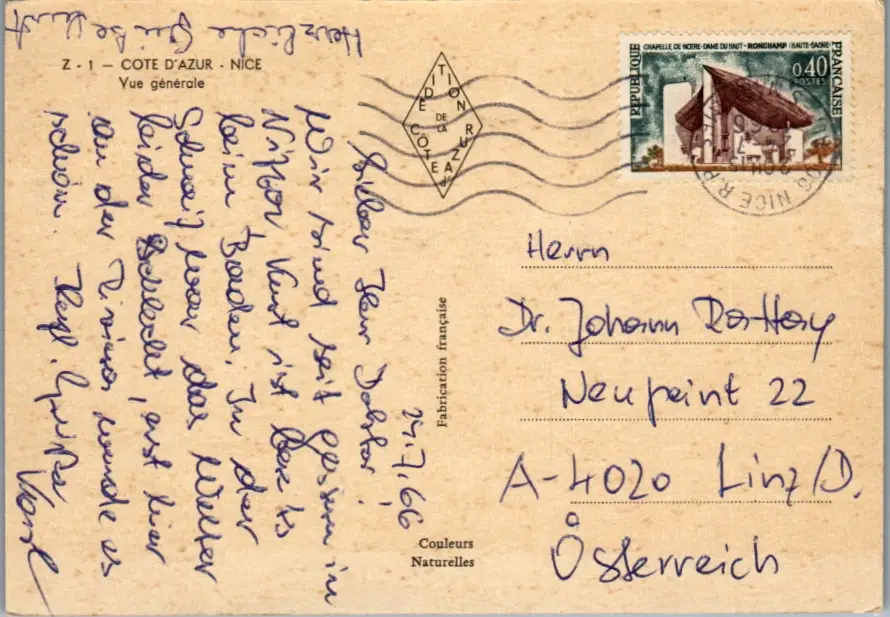 Z - 1 — COTE D'AZUR - NICE
Vue générale
EDITION
DE
LA
COTE
D'AZUR
Fabrication française
Couleurs
Naturelles
RÉPUBLIQUE
FRANÇAISE
CHAPELLE DE NOTRE-DAME DU HAUT - RONCHAMP (HAUTE-SAÔNE)
0,40
POSTES
NICE R.P.
24.7.66
Lieber Herr Doktor!
Wir sind seit gestern in
Nizza. Kurt ist bereits
beim Baden. In der
Schweiz war das Wetter
leider schlecht, erst hier
an der Riviera wurde es
schön. Herzl. Grüße
Herzliche Grüße Kurt
Herrn
Dr. Johann
Neupeint 22
A-4020 Linz/D.
Österreich